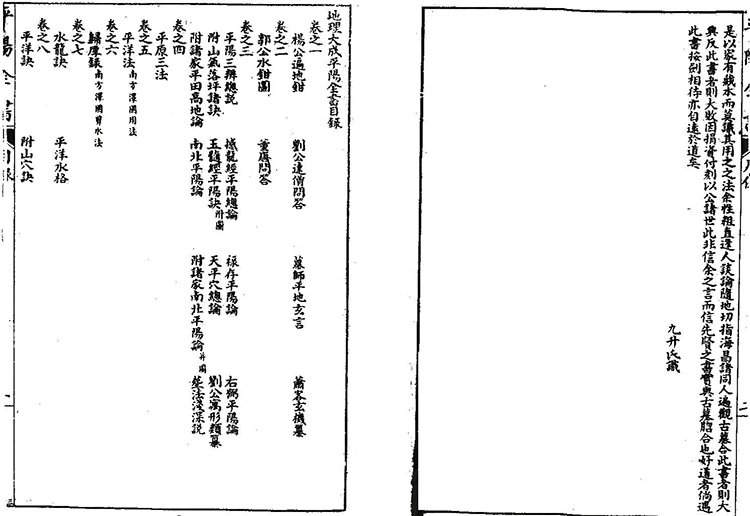 是以家有本而莫議其用之之法余性粗直逢人談論隨地切指海昌諸同人遍觀古墓合此書者則大
興反此書者則大敗因捐資付刻以公諸世此非信余之言而信先賢之書實與古墓脗合也好道者倘遇
此書按劍相待亦自遠於道矣
九升氏識
地理大成平陽全書目錄
卷之一
楊公遍地鉗 劉公達僧問答 墓師平地玄言 蕭客玄機
卷之二
郭公水鉗圖 董問答
卷之三
平陽三辨總說 撼龍經平陽總論 祿存平陽論 右弼平陽論
附山氣落坪諸訣 玉髓經平陽訣并圖 天平穴總論 劉公寓形類纂
附諸家平田高地論 南北平陽論 附諸家南北平陽論并圖 塟法淺深說
卷之四
平原三法
卷之五
平洋法南方澤國用法
卷之六
南方澤國剪水法
卷之七
水龍訣 平洋水格
卷之八
平洋訣 附山穴訣
平陽全書 目錄 二